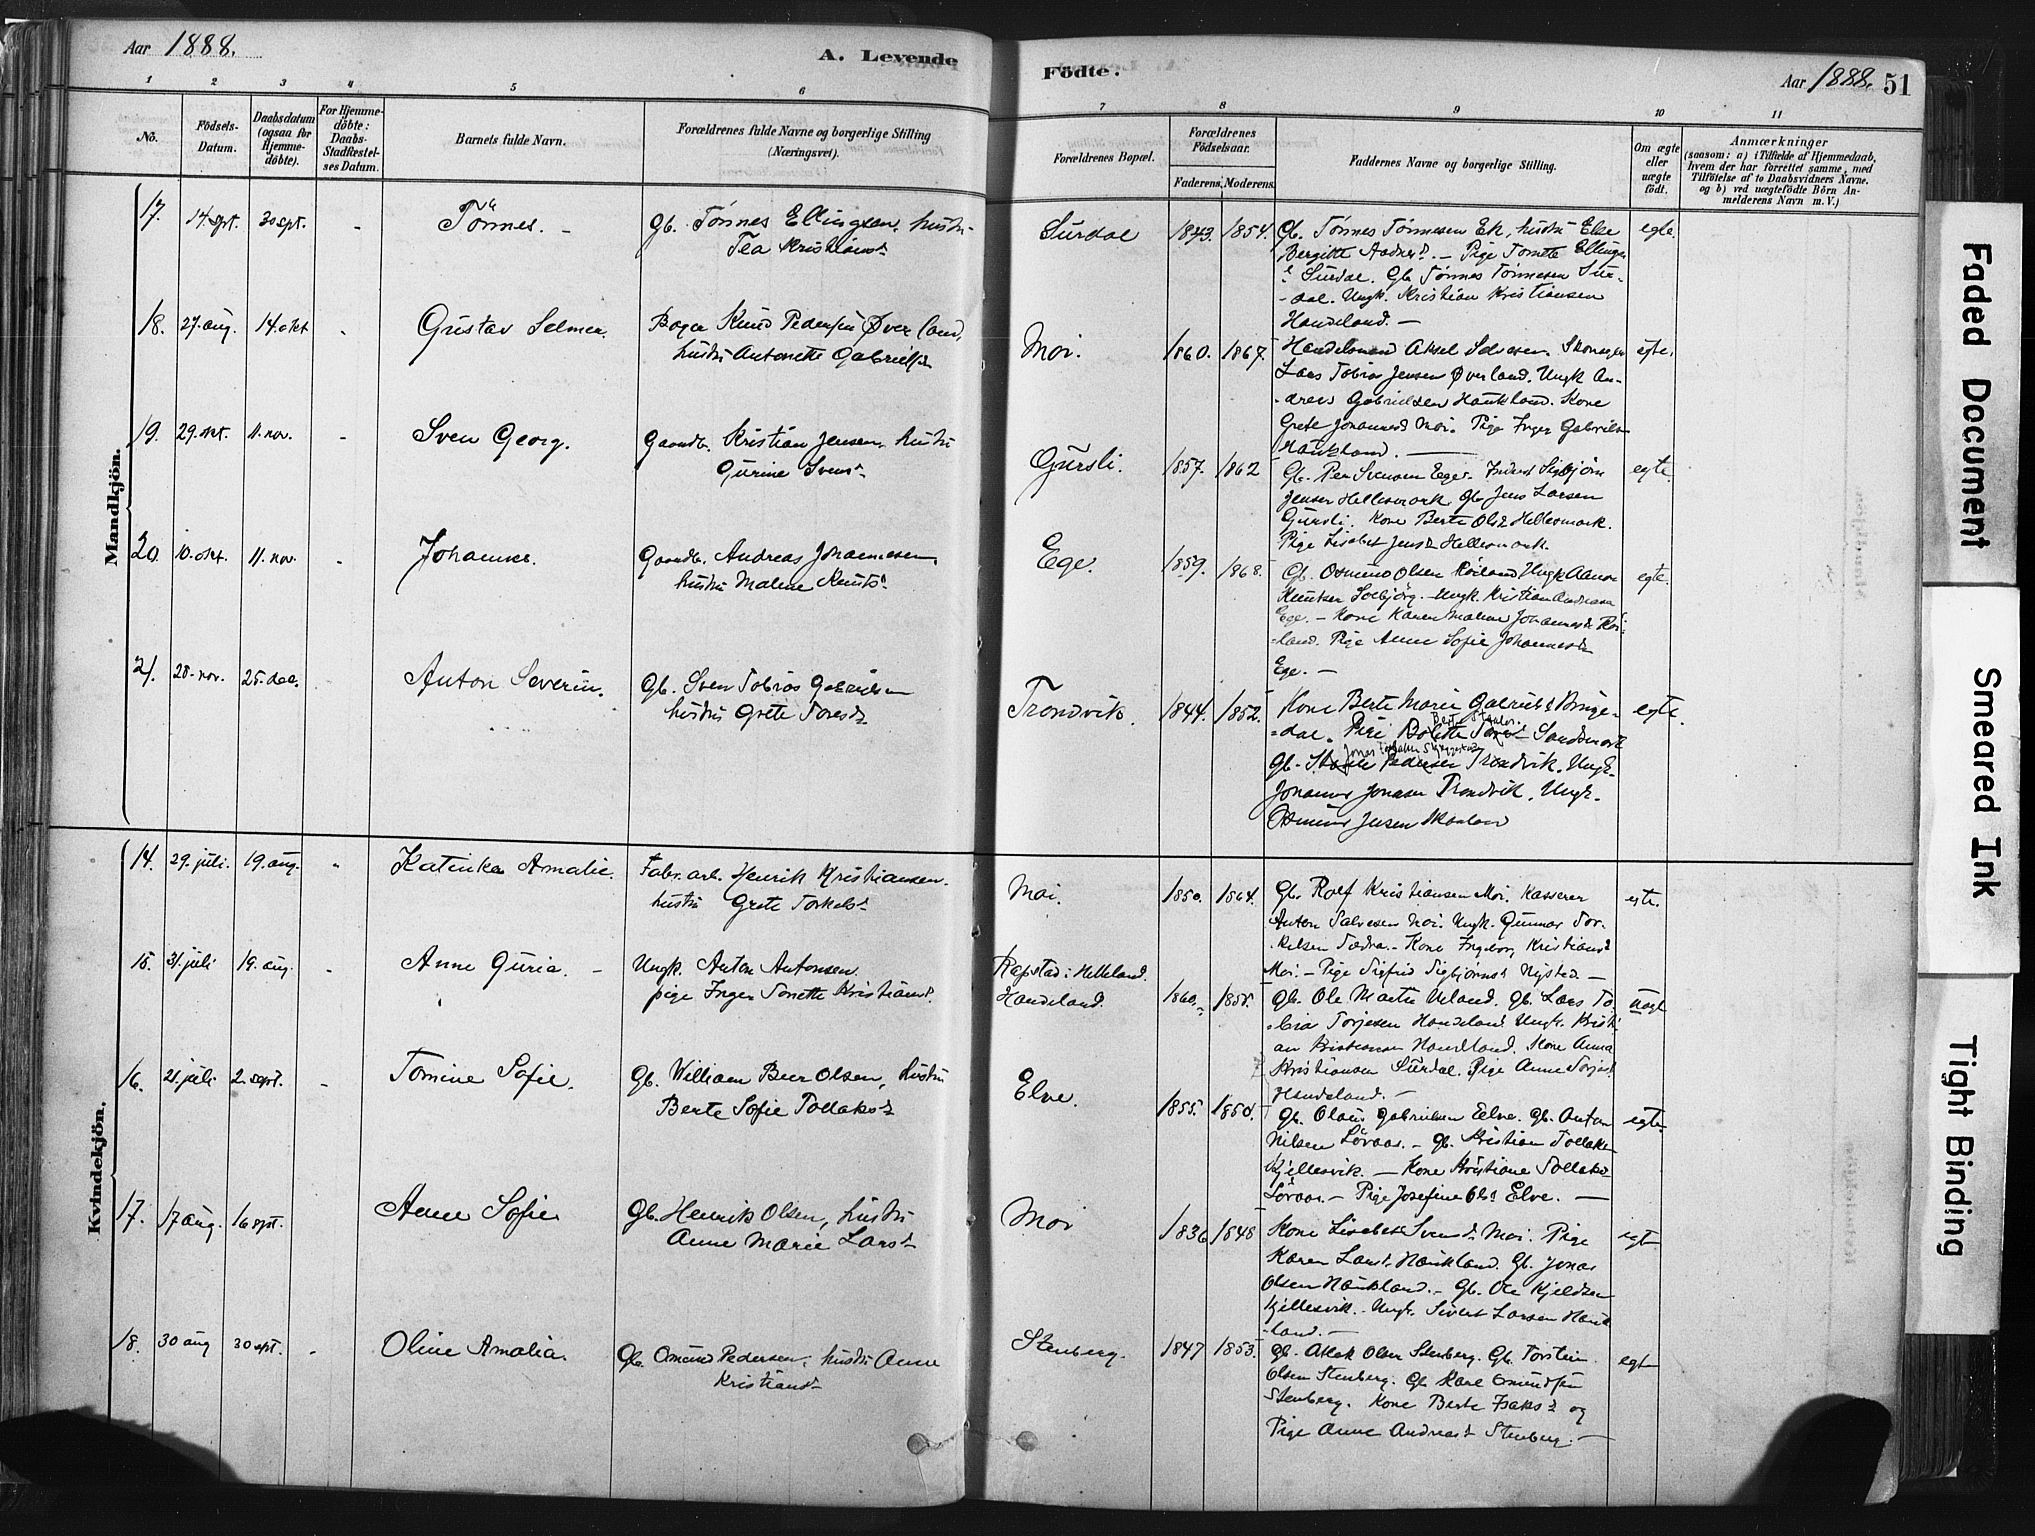 Aar 1888.
A. Levende
Födte.
Aar 1888. 51
1 2 3 4 5 6 7 8 9 10 11
No.
Födsels-
Datum.
Daabsdatum
(ogsaa for
Hjemme-
döbte).
For Hjemme-
döbte:
Daabs-
Stadfæstel-
ses Datum.
Barnets fulde Navn.
Forældrenes fulde Navne og borgerlige Stilling
(Næringsvei).
Forældrenes Bopæl.
Forældrenes
Födselsaar.
Faderens. Moderens.
Faddernes Navne og borgerlige Stilling.
Om ægte
eller
uægte
födt.
Anmærkninger
(saasom: a) i Tilfælde af Hjemmedaab,
hvem der har forrettet samme, med
Tilföielse af to Daabsvidners Navne,
og b) ved uægtefödte Börn An-
melderens Navn m. V.)
Mandkjön.
17. 14. spt. 30 spt. - Tönnes. -
Gb. Tönnes Ellingsen, hustru
Tea Kristians d.
Surdal 1843. 1854.
Gb. Tönnes Tönnesen Ek, hustru Else
Bergitte Aadnesd. - Pige Tomette Ellings
d Surdal. Gb Tönnes Tönnesen Sur-
dal. Ungk. Kristian Kristiansen
Handeland. -
egte.
18. 27. aug. 14. okt - Gustav Selmer.
Bager Knud Pedersen Överland,
hustru Antonette Gabrielsd.
Moi. 1860. 1867.
Handelsmand Aksel Salvesen. Skomager
Lars Tobias Jensen Överland. Ungk An-
dreas Gabrielsen Haukland. Kone
Grete Johannesd Moi. Pige Inger Gabriels
Haukland.
egte.
19. 29. okt. 11. nov. - Sven Georg.
Gaardb. Kristian Jensen, hustru
Gurine Svensd.
Gursli. 1857. 1862
Gb. Per Svensen Ege. Inderst Sigbjörn
Jensen Hellesmark. Gb Jens Larsen
Gursli. Kone Berte Olsd Hellesmark.
Pige Lisabet Jensd Hellesmark.
egte.
20. 10. okt. 11. nov. - Johannes.
Gaardb. Andreas Johannesen,
hustru Malene Knutsd.
Ege. 1859. 1868.
Gb. Osmund Olsen Röiland Ungk Aanon
Knutsen Solbjörg. - Ungk. Kristian Andreasen
Ege. - Kone Karen Malene Johannesd Röi-
land. Pige Anne Sofie Johannesd
Ege. -
egte.
21. 28. nov. 25. dec. Anton Severin.
Gb. Sven Tobias Gabrielsen
hustru Grete Toresd.
Trondvik. 1844. 1852.
Kone Berte Marie Gabrielsd Bruge-
dal. Pige Sandsmark
Gb. Pedersen Trondvik. Ungk.
Johannes Jonasen Trondvik. Ungk.
Osmund Jensen Skaaland
egte.
Kvindekjön.
14. 29. juli. 19. aug. - Katinka Amalie.
Fabr. arb. Henrik Kristiansen.
hustru Grete Torkelsd
Moi. 1850. 1864.
Gb. Rolf Kristiansen Moi. Kasserer
Anton Salvesen Moi. Ungk. Gunnar Tor-
kelsen Tødra. - Kone Ingebor, Kristiansd
Moi. - Pige Sigfrid Sigbjørnsd Nystad -
egte.
15. 31. juli 19. aug. - Anne Guria. -
Ungk. Anton Antonsen.
pige Inger Tonette Kristiansd.
Rapstad i Helleland.
Handeland. 1860. 1855.
Gb. Ole Martin Urland. Gb. Lars To-
bias Torjesen Handeland Ungk. Kristi
an Kristiansen Handeland. Kone Anna
Kristiansen Surdal. Pige Anne Torjesd
Handeland. -
uegt
16. 21. juli 2. sept. - Tomine Sofie.
Gb. William Beer Olsen, hustru
Berte Sofie Tollaksd
Elve. 1855. 1850.
Gb. Olaus Gabrielsen Eelve. Gb. Anton
Nilsen Lövaas. - Gb. Kristian Tollaksen
Kjellesvik. - Kone Kristiane Tollaksd
Lövaas. - Pige Josefine Olsd Elve. -
egte
17. 17 aug. 16 spt. Anne Sofie
Gb. Henrik Olsen, hustru
Anne Marie Larsd
Moi 1836 1848
Kone Lisabet Svensd. Moi. Pige
Karen Larsd. Haukland. Gb. Jonas
Olsen Haukland. - Gb. Ole Kjeldsen
Kjellesvik. - Ungk. Sivert Larsen Hauk
land. -
egt
18. 30 aug 30 spt. - Oline Amalia.
Gb. Omund Pedersen, hustru Anne
Kristiansd
Stenberg. 1847 1853.
Gb. Atlak Olsen Stenberg. Gb. Torstein
Olsen Stenberg. Gb Karl Omundsen
Stenberg. Kone Berte Isaksd og
Pige Anne Andreasd Stenberg. -
egt
Faded Document
Smeared Ink
Tight Binding